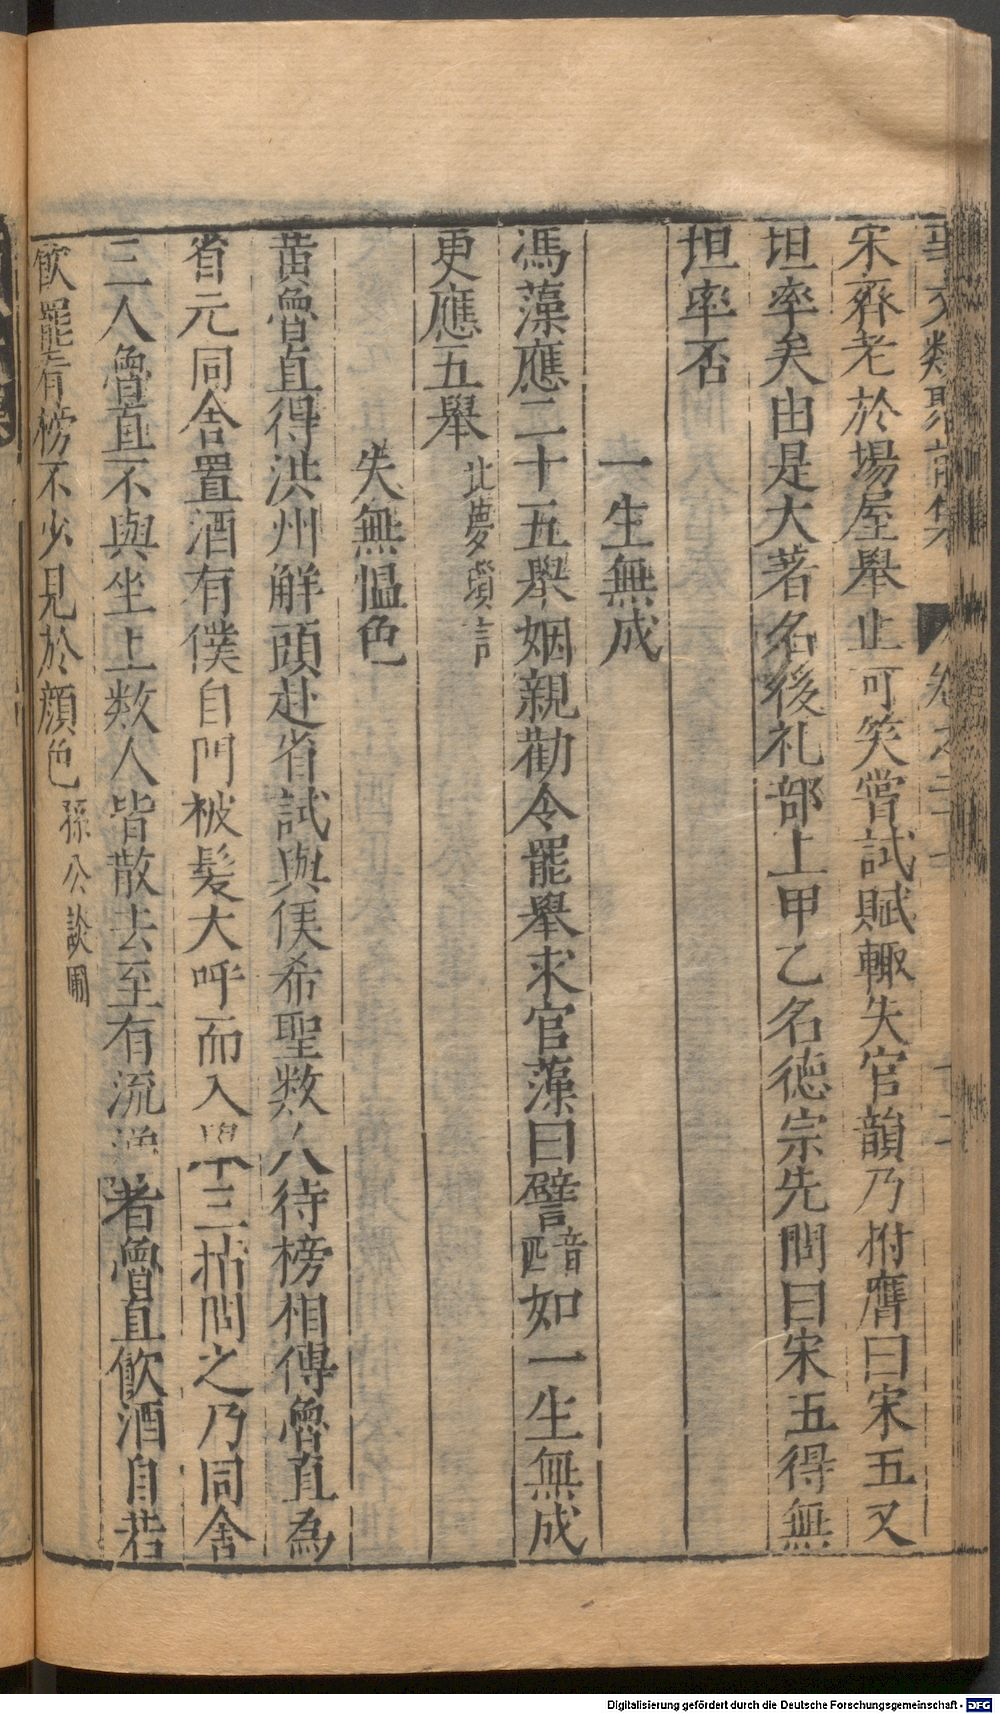 事文類聚前集 卷之二十
宋齊老於場屋舉止可笑嘗試賦輙失官韻乃拊膺曰宋五又
坦率矣由是大著名後礼部上甲乙名德宗先問曰宋五得無
坦率否
一生無成
馮藻應二十五舉姻親勸令罷舉求官藻曰譬音匹如一生無成
更應五舉北夢瑣言
失無愠色
黃魯直得洪州解頭赴省試與侯希聖數人待榜相傳魯直為
省元同舍置酒有僕自門被髮大呼而入舉三指問之乃同舍
三人魯直不與坐上數人皆散去至有流涕者魯直飲酒自若
飲罷看榜不少見於顔色孫公談圃
Digitalisierung gefördert durch die Deutsche Forschungsgemeinschaft - DFG